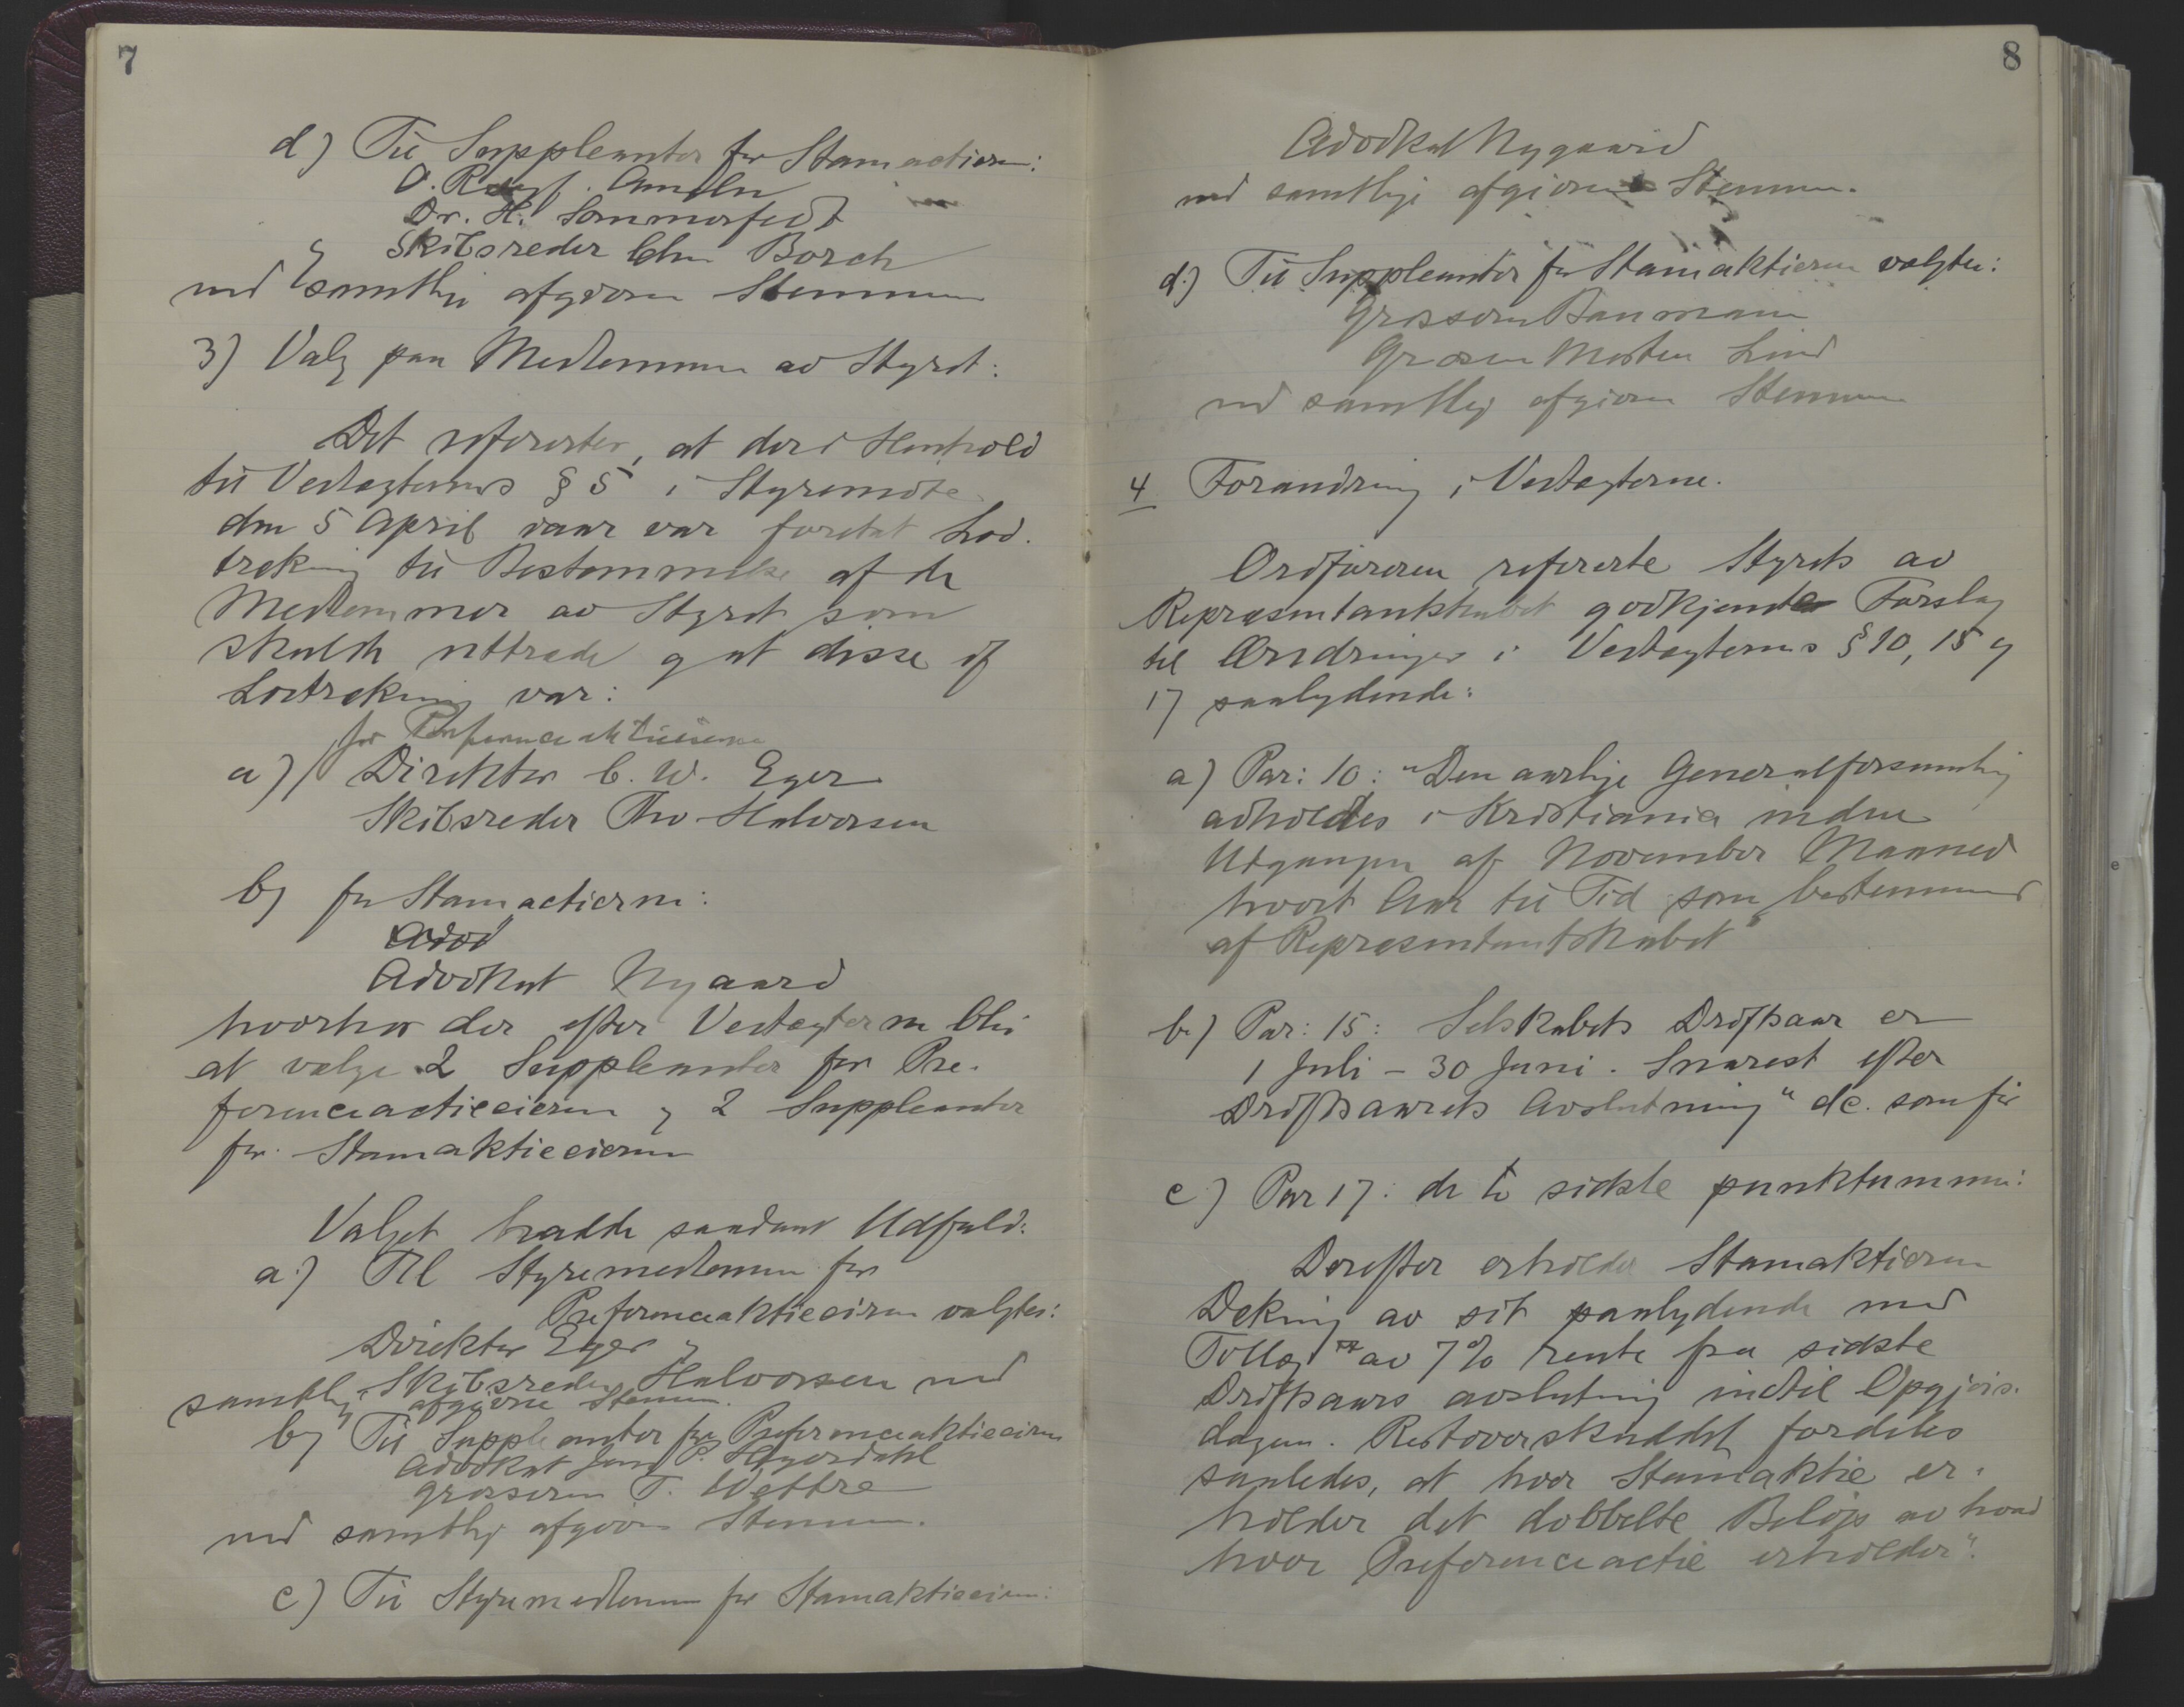 7
d) Til Suppleanter for Stamactieren:
O. Ameln
Dr. H. Sommerfeldt
Skibsreder Chr Borch
med samtlige afgivne Stemmer
3) Valg paa Medlemmer av Styret:
Det refererter, at der i Henhold
til Vedtægternes § 5 i Styremöte
den 5 April vaar var foretat Lod-
trekning til Bestemmelse af de
Medlemmer av Styret som
skulde uttræde og at disse if
Lodtrekning var:
for Preferenceaktieeierne
a) Direktør C. W. Eger
Skibsreder Thv. Halvorsen
b) for Stamactierne:
Advo
Advokat Nyaard
hvorhos der efter Vedtægterne blir
at vælge 2 Suppleanter for Pre-
ferenceactieeieren og 2 Suppleanter
for Stamaktieeierne
Valget hadde saadant Udfald:
a) Til Styremedlemmer for
Preferenceaktieeierne valgtes:
Direktør Eger og
Skibsreder Halvorsen med
samtlige afgivne Stemmer.
b) Til Suppleanter for Preferenceaktieeierne
Advokat Jens P. Heyerdahl
Grosserer T. Wettre
med samtlige afgivne Stemmer.
c) Til Styremedlemmer for Stamaktieeiere:
8
Advokat Nygaard
med samtlige afgivne Stemmer.
d.) Til Suppleanter for Stamaktieren valgtes:
Grosserer Baumann
Grosser Morten Lind
med samtlige afgivne Stemmer
4 Forandring i Vedtægterne.
Ordføreren refererte Styrets av
Repræsentantskabet godkjendte Forslag
til Ændringer i Vedtægternes § 10, 15 og
17 saalydende:
a) Par: 10: "Den aarlige Generalforsamling
avholdes i Kristiania inden
Udgangen af November Maaned
hvert Aar til Tid som bestemmes
af Repræsentantskabet"
b.) Par: 15: Selskabets Driftsaar er
1 Juli - 30 Juni. Snarest efter
Driftsaarets Avslutning" &c. som før
c.) Par 17: de to sidste punktummer:
Derefter erholder Stamaktieren
Dekning av sit paalydende med
Tillæg av 7% rente fra sidste
Driftsaars avslutning indtil Opgjørs-
dagen. Restoverskuddet fordeles
saaledes, at hver Stamaktie er-
holder det dobbelte Beløp av hvad
hver Preferenceactie erholder".